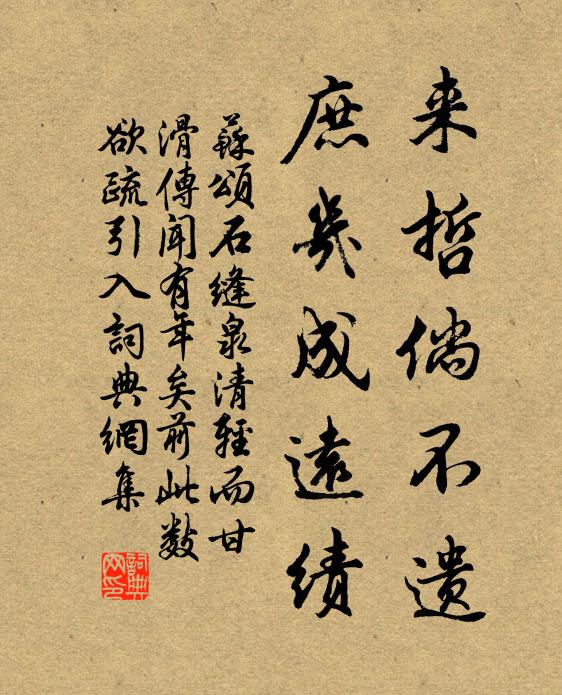 来哲倘不遗
庶几成遠績
蘇頌石縫泉清輕而甘
滑傳聞有年矣前此数
欲疏引入詞典網集
詞典网印